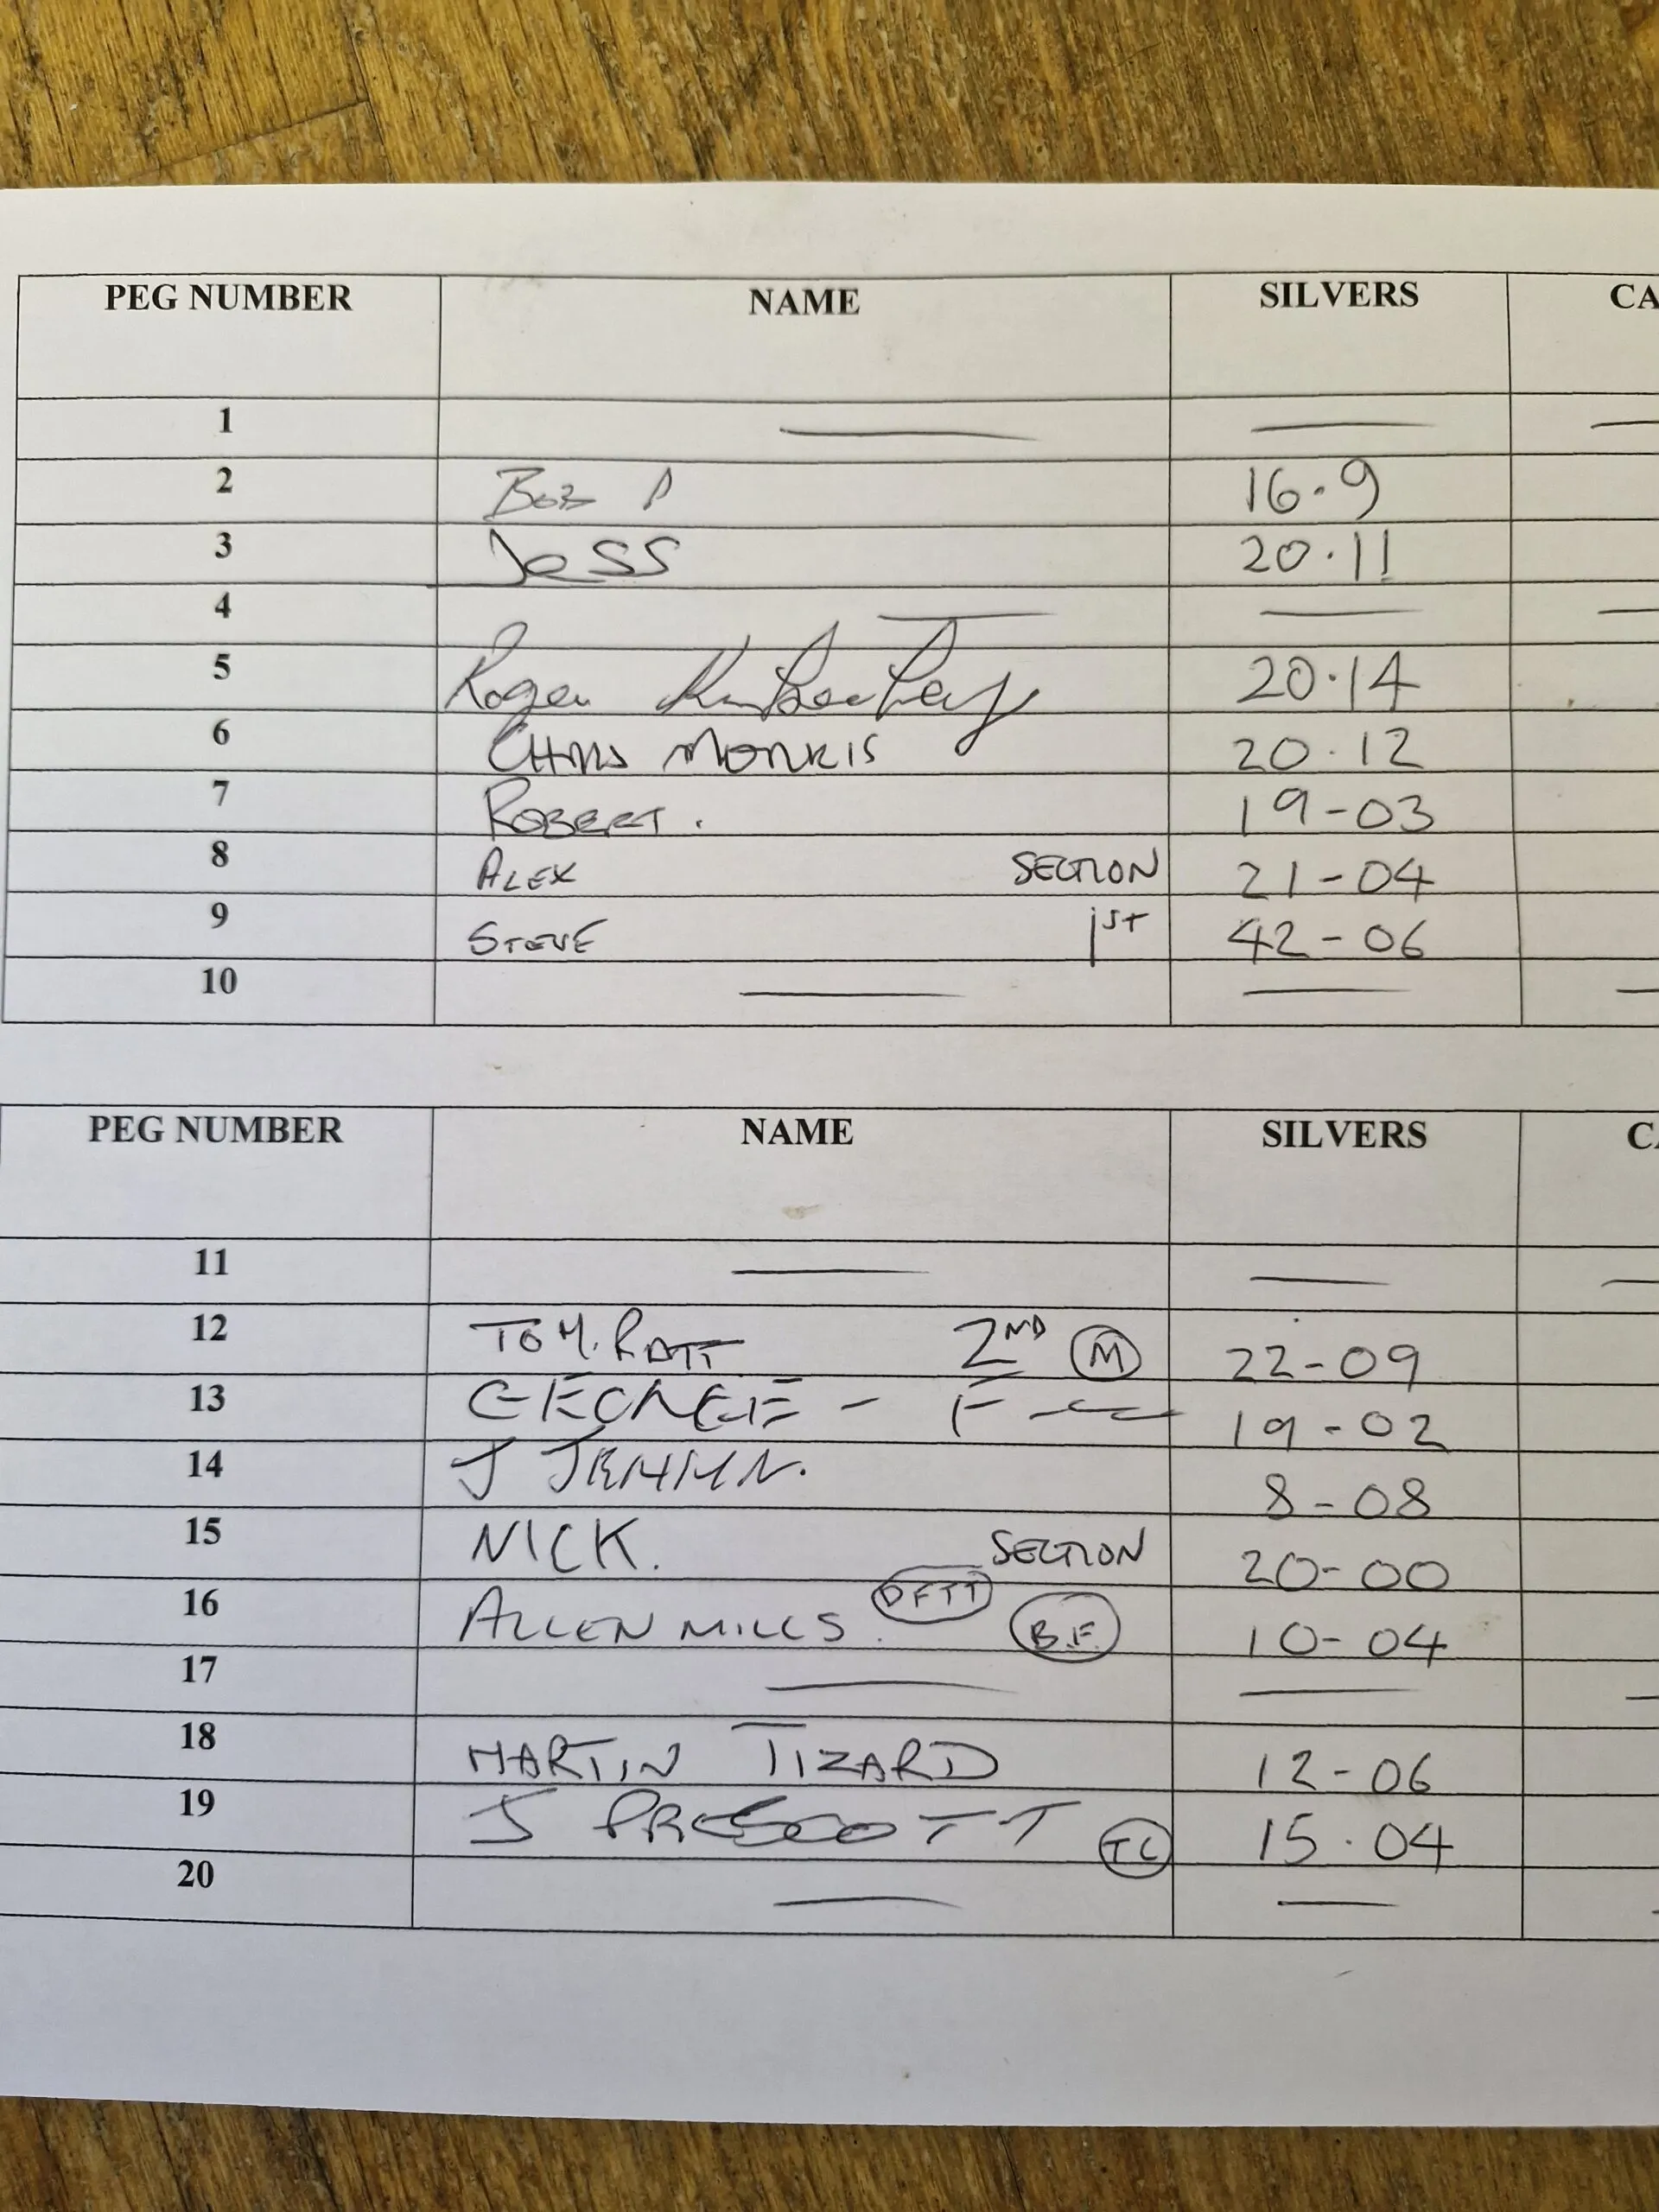 PEG NUMBER NAME SILVERS CA
1
2 BOB P 16.9
3 JESS 20.11
4
5 Roger 20.14
6 CHRIS MORRIS 20.12
7 ROBERT. 19-03
8 ALEX SECTION 21-04
9 STEVE 1ST 42-06
10
PEG NUMBER NAME SILVERS CA
11
12 TOM. PRATT 2ND M 22-09
13 GEORGE - F 19-02
14 J 8-08
15 NICK. SECTION 20-00
16 ALLEN MILLS. DFTT B.F. 10-04
17
18 MARTIN TIZARD 12-06
19 J PRESCOTT TC 15.04
20